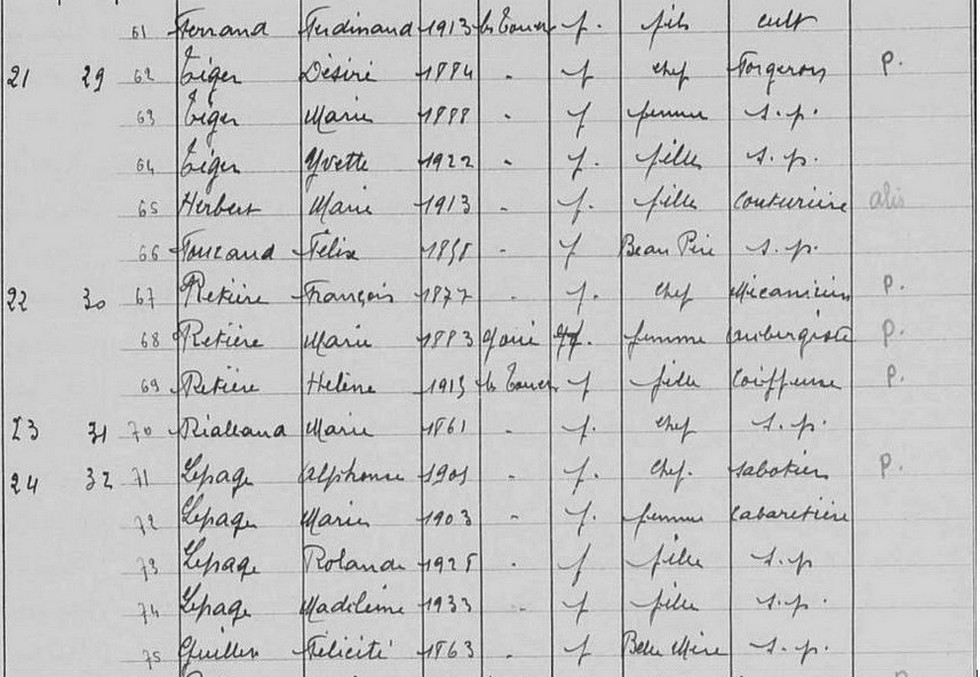 61 Ferrand Ferdinand 1913 les Touches f. fils cult
21 29 62 Tiger Désiré 1884 - f chef Forgeron P.
63 Tiger Marie 1888 - f femme s. p.
64 Tiger Yvette 1922 - f. fille s. p.
65 Herbert Marie 1913 - f. fille Couturière
66 Félix - f Beau Père s. p.
22 30 67 Retière François 1877 - f. chef Mécanicien P.
68 Retière Marie 1883 f. femme aubergiste P.
69 Retière Hélène 1915 f fille Coiffeuse P.
23 31 70 Rialland Marie 1861 - f. chef s. p.
24 32 71 Lepage Alphonse 1901 - f. chef. sabotier P.
72 Lepage Marie 1903 - f. femme Cabaretière
73 Lepage Rolande 1925 - f fille s. p
74 Lepage Madeleine 1933 - f fille s. p.
75 Guillen Félicité 1863 - f Belle Mère s. p.